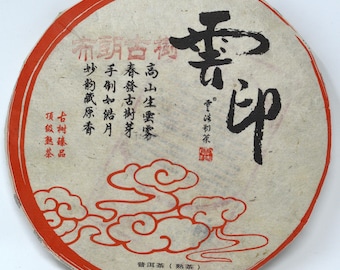 布朗古樹
雲印
高山生雲霧
春發古樹芽
手倒如皓月
妙韵藏原香
古樹臻品
頂級熟茶
普洱茶（熟茶）